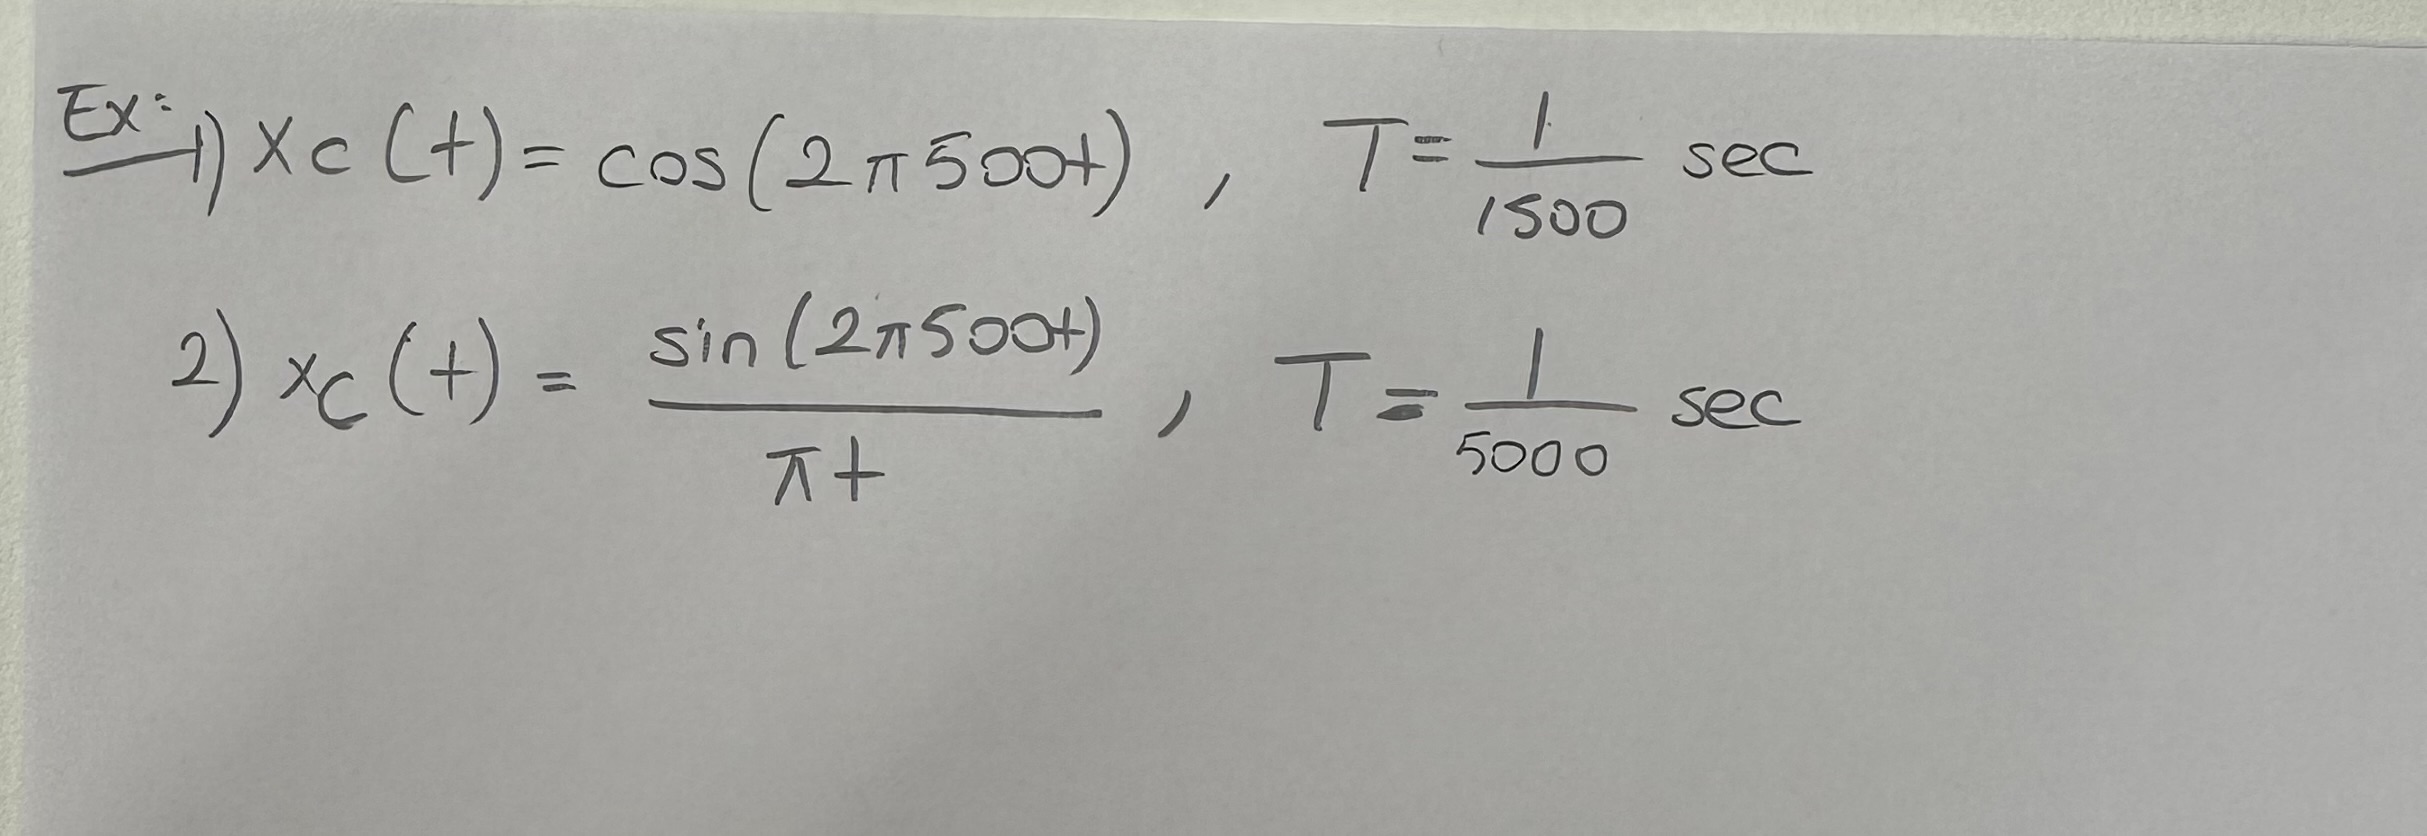 Ex: 1) xc(t) = cos(2π500t) , T = 1/1500 sec
2) xc(t) = sin(2π500t)/πt , T = 1/5000 sec